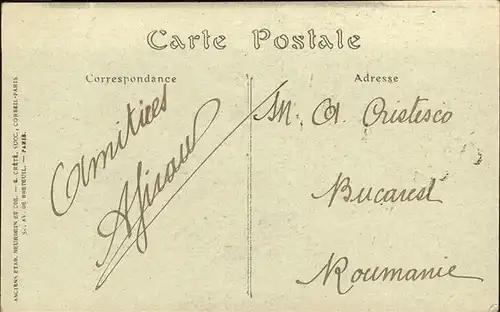 Carte Postale
Correspondance
Adresse
Amitiées
M. A. Cristesco
Bucarest
Roumanie
ANCIENS ETAB. NEURDEIN ET CIE. — E. CRÉTÉ, SUCC., CORBEIL-PARIS
52, AV. DE BRETEUIL. — PARIS.